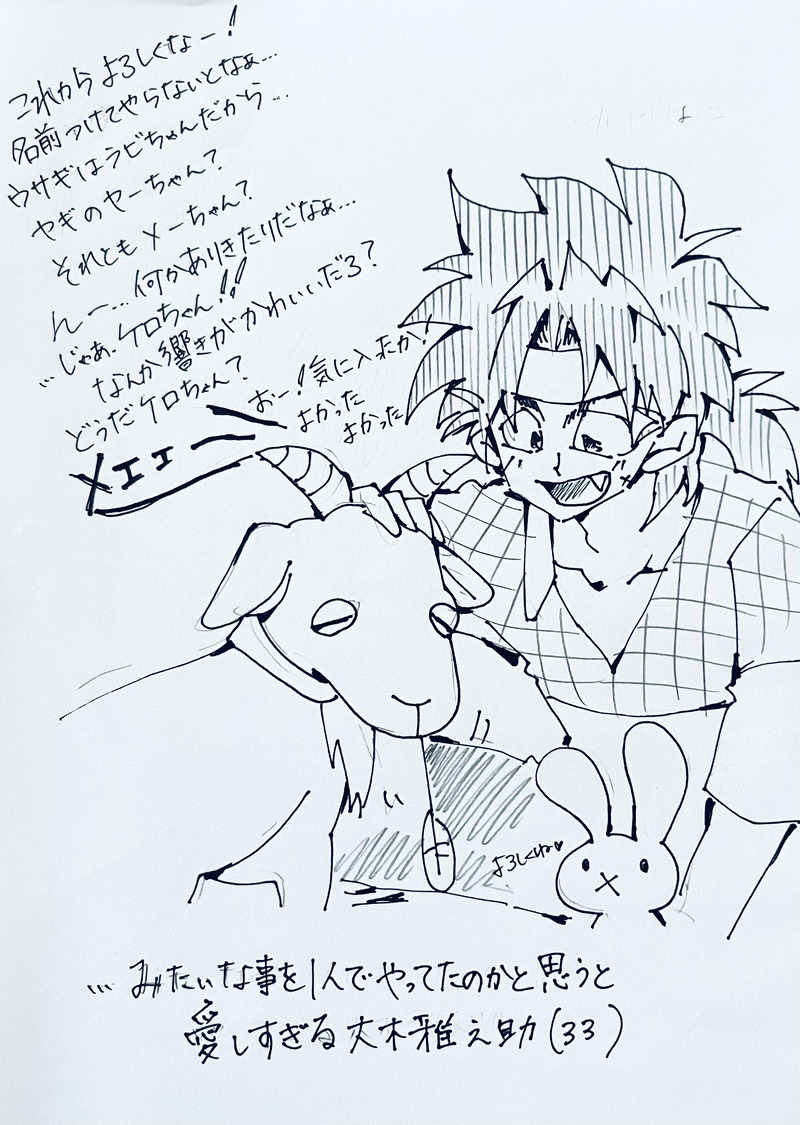 これからよろしくなー!
名前つけてやらないとなぁ…
ウサギはラビちゃんだから…
ヤギのヤーちゃん?
それともメーちゃん?
んー…何かありきたりだなぁ…
…じゃあ、ケロちゃん!!
なんか響きがかわいいだろ?
どうだケロちゃん?
メェェー
おー!気に入たか!
よかった
よかった
よろしくね♥
…みたいな事を1人でやってたのかと思うと
愛しすぎる大木雅之助(33)